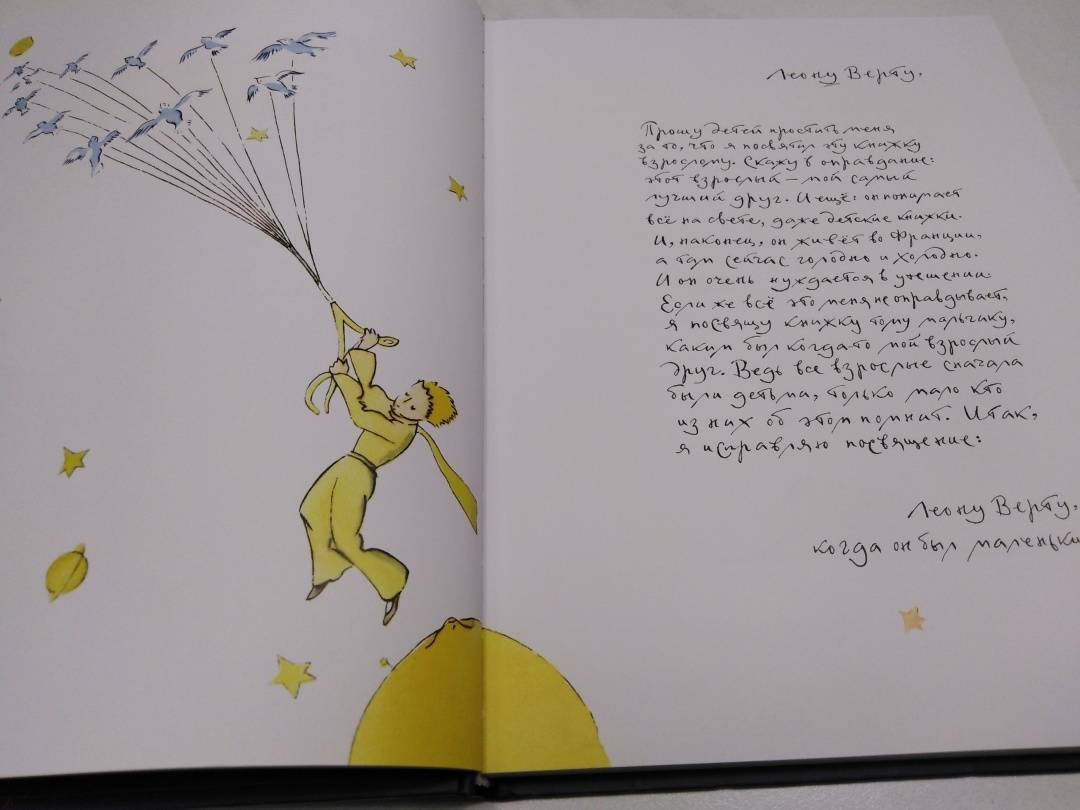 Леону Верту.
Прошу детей простить меня
за то, что я посвятил эту книжку
взрослому. Скажу в оправдание:
этот взрослый — мой самый
лучший друг. И ещё: он понимает
всё на свете, даже детские книжки.
И, наконец, он живёт во Франции,
а там сейчас голодно и холодно.
И он очень нуждается в утешении.
Если же всё это меня не оправдывает,
я посвящу книжку тому мальчику,
каким был когда-то мой взрослый
друг. Ведь все взрослые сначала
были детьми, только мало кто
из них об этом помнит. Итак,
я исправляю посвящение:
Леону Верту,
когда он был маленьки